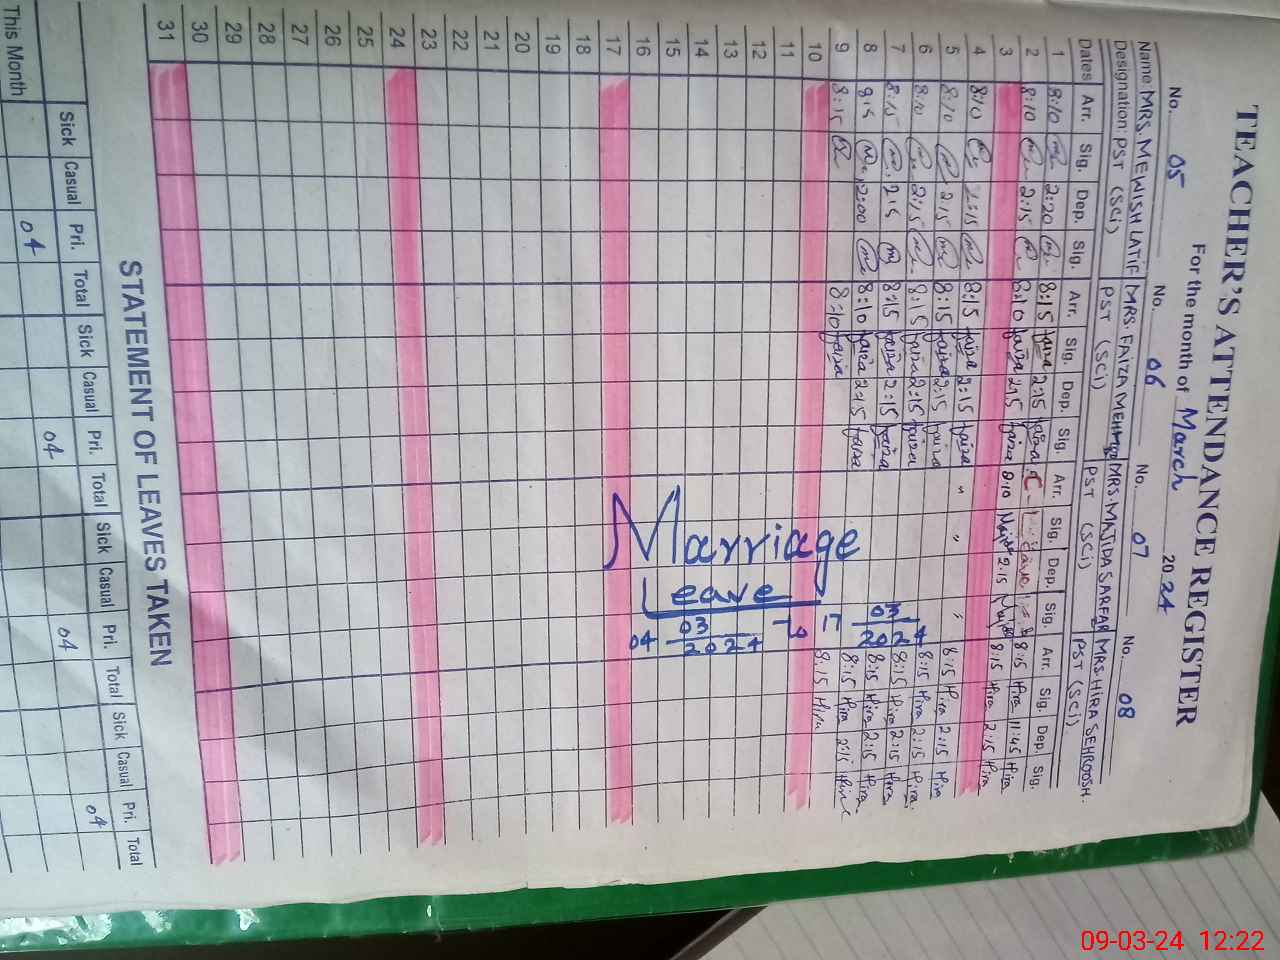 TEACHER'S ATTENDANCE REGISTER
For the month of March 2024
No. 05 No. 06 No. 07 No. 08
Name: MRS. MEWISH LATIF MRS. FAIZA MEHMOOD MRS. MAJIDA SARFARAZ MRS. HIRA SEHROOSH.
Designation: PST (SCi) PST (SCi) PST (SCi) PST (SCi).
Dates Arr. Sig. Dep. Sig. Arr. Sig. Dep. Sig. Arr. Sig. Dep. Sig. Arr. Sig. Dep. Sig.
1 8:10 2:20 8:15 faiza 2:15 faiza C. Leave 8:15 Hira 11:45 Hira
2 8:10 2:15 8:10 faiza 2:15 faiza 8:10 Majida 2:15 Majida 8:15 Hira 2:15 Hira
3
4 8:10 2:15 8:15 faiza 2:15 faiza " " " 8:15 Hira 2:15 Hira
5 8:10 2:15 8:15 faiza 2:15 faiza 8:15 Hira 2:15 Hira
6 8:10 2:15 8:15 faiza 2:15 faiza 8:15 Hira 2:15 Hira
7 8:15 2:15 8:15 faiza 2:15 faiza 8:15 Hira 2:15 Hira
8 8:15 12:00 8:10 faiza 2:15 faiza 8:15 Hira 2:15 Hira
9 8:15 8:10 faiza 8:15 Hira
10
11
12
13
14
15
16
17
18
19
20
21
22
23
24
25
26
27
28
29
30
31
Marriage
Leave
04 03 2024 To 17 03 2024
STATEMENT OF LEAVES TAKEN
Sick Casual Pri. Total Sick Casual Pri. Total Sick Casual Pri. Total Sick Casual Pri. Total
04 04 04 04
This Month
09-03-24 12:22